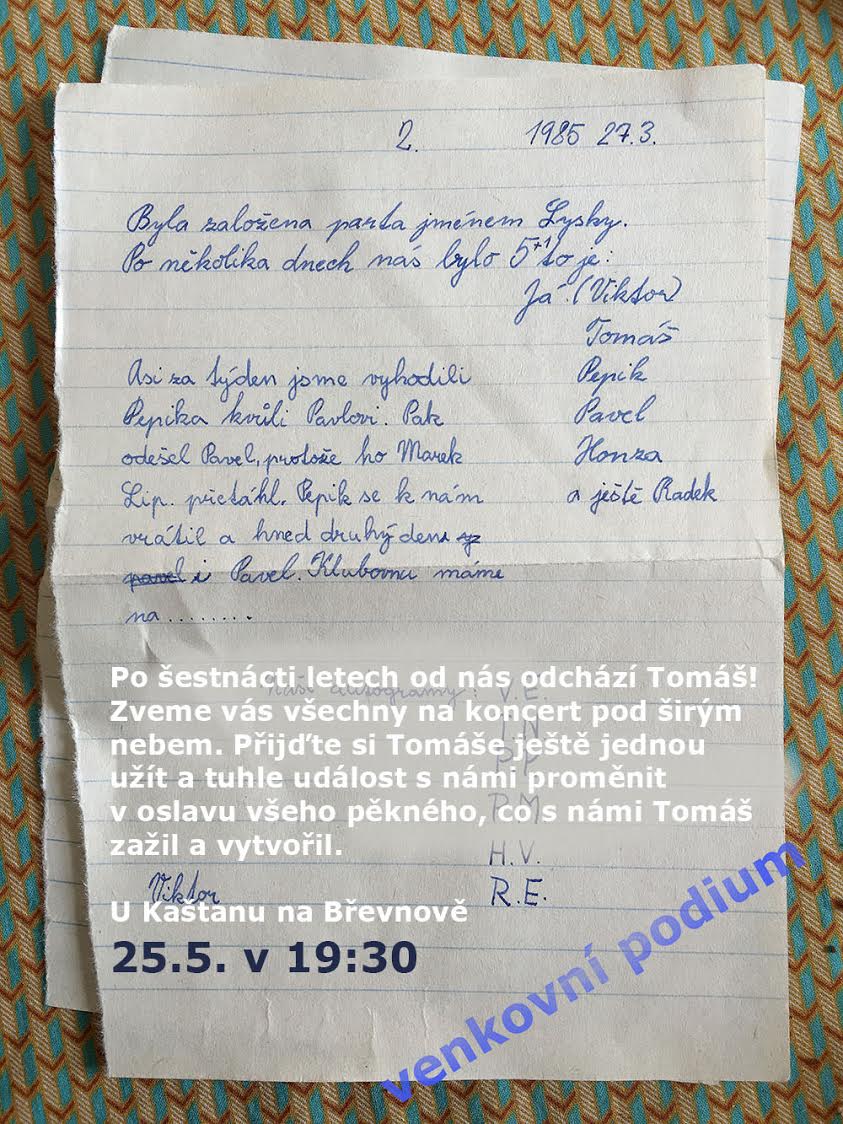 2. 1985 27.3.
Byla založena parta jménem Lysky.
Po několika dnech nás bylo 5+1 to je:
Já (Viktor)
Tomáš
Pepik
Pavel
Honza
a ještě Radek
Asi za týden jsme vyhodili
Pepika kvůli Pavlovi. Pak
odešel Pavel, protože ho Marek
Lip. přetáhl. Pepik se k nám
vrátil a hned druhý den
pavel i Pavel. Klubovnu máme
na .........
Naše autogramy: V.E.
T.N
P.P
P.M
H.V.
R.E.
Viktor
Po šestnácti letech od nás odchází Tomáš!
Zveme vás všechny na koncert pod širým
nebem. Přijďte si Tomáše ještě jednou
užít a tuhle událost s námi proměnit
v oslavu všeho pěkného, co s námi Tomáš
zažil a vytvořil.
U Kaštanu na Břevnově
25.5. v 19:30
venkovní podium